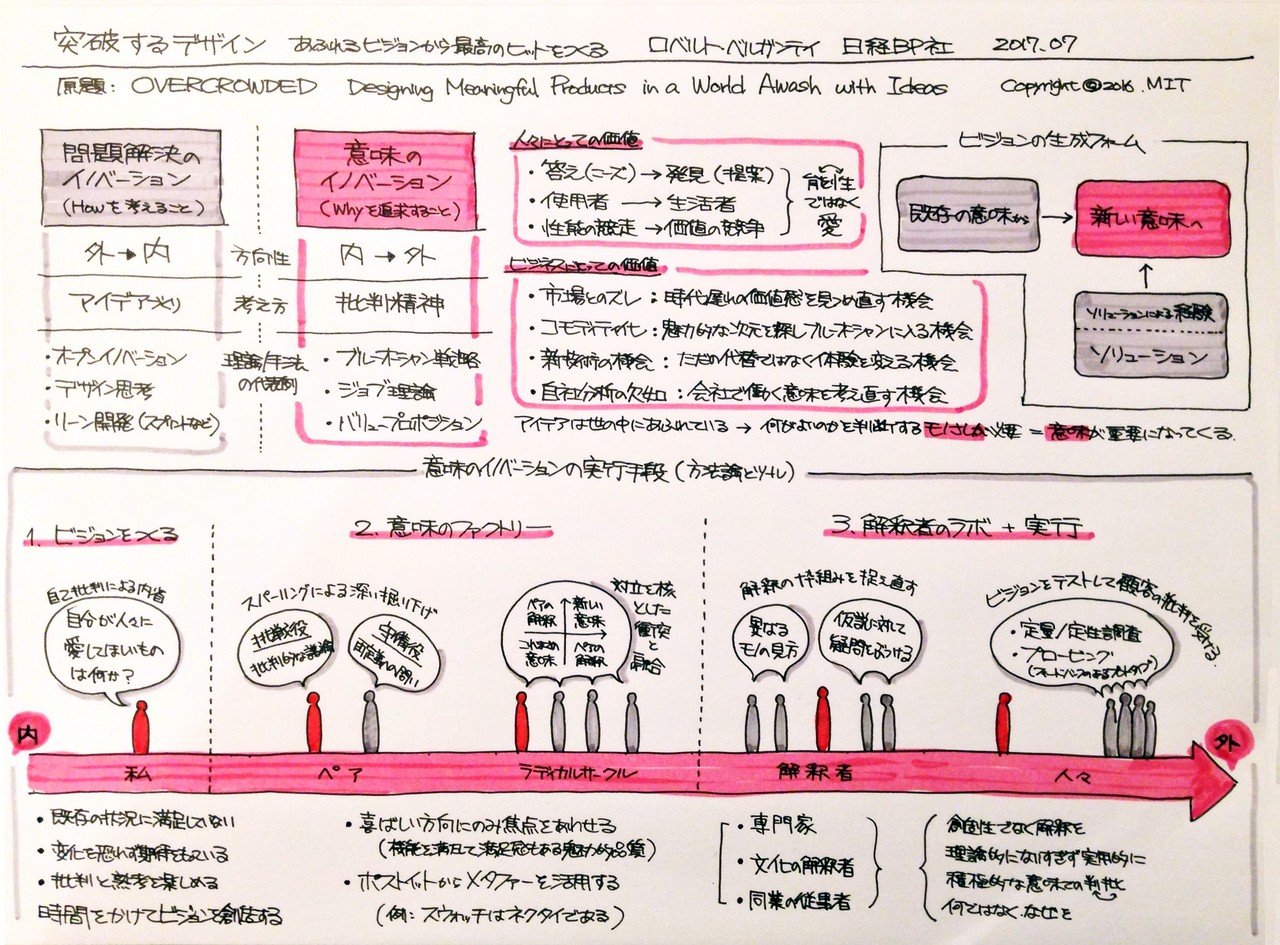 突破するデザイン あふれるビジョンから最高のヒットをつくる ロベルト・ベルガンティ 日経BP社 2017.07
原題: OVERCROWDED Designing Meaningful Products in a World Awash with Ideas Copyright ©2016.MIT
問題解決の
イノベーション
(Howを考えること)
意味の
イノベーション
(Whyを追求すること)
外→内
方向性
内→外
アイデア
考え方
批判精神
・オープンイノベーション
・デザイン思考
・リーン開発(スプリントなど)
理論/手法
の代表例
・ブルーオーシャン戦略
・ジョブ理論
・バリュープロポジション
人々にとっての価値
・答え(ニーズ)→発見(提案)
・使用者→生活者
・性能の競走→価値の競争
能性
ではなく
愛
ビジネスにとっての価値
・市場とのズレ:時代遅れの価値感を見つめ直す機会
・コモディティ化:魅力的な次元を探しブルーオーシャンに入る機会
・新技術の機会:ただの代替ではなく体験を変える機会
・自社分析の欠如:会社で働く意味を考え直す機会
アイデアは世の中にあふれている→何がよいのかを判断するモノさしが必要=意味が重要になってくる.
ビジョンの生成フォーム
既存の意味から
→
新しい意味へ
ソリューションによる経験
ソリューション
意味のイノベーションの実行手段(方法論とツール)
1. ビジョンをつくる
2. 意味のファクトリー
3. 解釈者のラボ + 実行
自己批判による内省
自分が人々に
愛してほしいもの
は何か?
スパーリングによる深い掘り下げ
挑戦役
批判的な議論
守備役
ペアの
解釈
新しい
意味
これまの
意味
ペアの
解釈
対立を核
とした
衝突
と
融合
解釈の枠組みを捉え直す
異なる
モノの見方
仮説に対して
疑問をぶつける
ビジョンをテストして顧客の批判を受ける.
・定量/定性調査
・プロービング
内
私
ペア
ラディカルサークル
解釈者
人々
外
・既存の状況に満足していない
・変化を恐れず期待をもている
・批判と熟考を楽しめる
時間をかけてビジョンを創造する
・喜ばしい方向にのみ焦点をあわせる
(機能を満足して満足感もある魅力的品質)
・ポストイットからメタファーを活用する
(例: スウォッチはネクタイである)
・専門家
・文化の解釈者
・同業の従業者
創造性でなく解釈を
理論的になりすぎず実用的に
積極的な意味での判批
何ではなく、なぜを